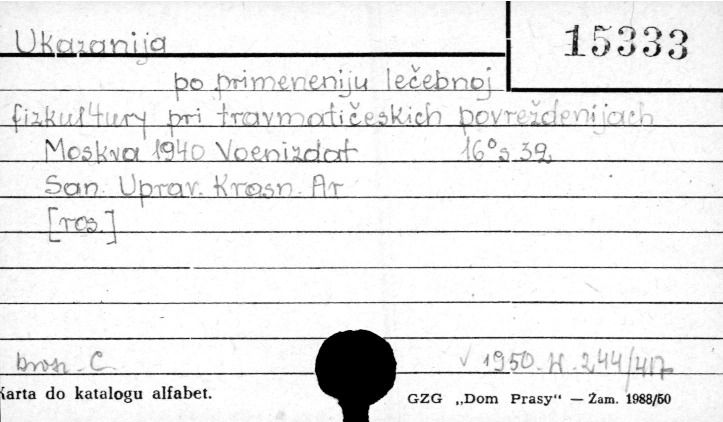 Ukazanija
15333
po primeneniju lečebnoj
fizkul'tury pri travmatičeskich povreždenijach
Moskva 1940 Voenizdat 16° s. 32
San. Uprav. Krasn. Ar
[ros.]
brosz. C. √ 1950. K. 244/417
Karta do katalogu alfabet.
GZG „Dom Prasy“ — Zam. 1988/50